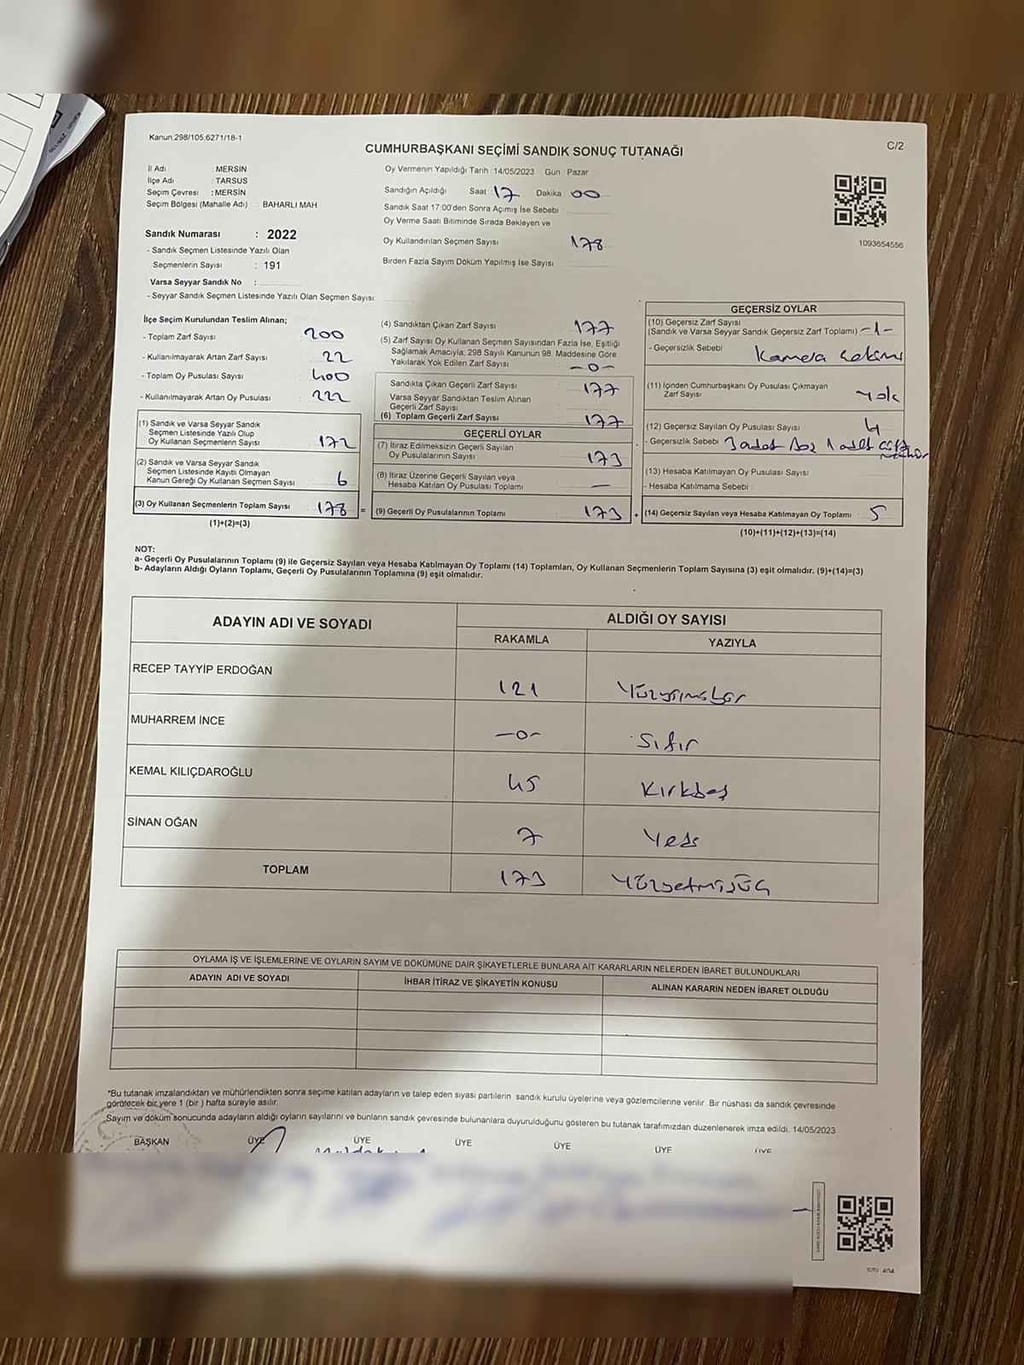 Kanun:298/105,6271/18-1
C/2
CUMHURBAŞKANI SEÇİMİ SANDIK SONUÇ TUTANAĞI
İl Adı : MERSİN
İlçe Adı : TARSUS
Seçim Çevresi : MERSİN
Seçim Bölgesi (Mahalle Adı) : BAHARLI MAH
Sandık Numarası : 2022
- Sandık Seçmen Listesinde Yazılı Olan
Seçmenlerin Sayısı : 191
Varsa Seyyar Sandık No :
- Seyyar Sandık Seçmen Listesinde Yazılı Olan Seçmen Sayısı:
Oy Vermenin Yapıldığı Tarih :14/05/2023 Gün : Pazar
Sandığın Açıldığı Saat 17 Dakika 00
Sandık Saat 17:00'den Sonra Açmış İse Sebebi
Oy Verme Saati Bitiminde Sırada Bekleyen ve
Oy Kullandırılan Seçmen Sayısı 178
Birden Fazla Sayım Döküm Yapılmış İse Sayısı
1093654556
İlçe Seçim Kurulundan Teslim Alınan;
- Toplam Zarf Sayısı 200
- Kullanılmayarak Artan Zarf Sayısı 22
- Toplam Oy Pusulası Sayısı 400
- Kullanılmayarak Artan Oy Pusulası 222
(1) Sandık ve Varsa Seyyar Sandık
Seçmen Listesinde Yazılı Olup
Oy Kullanan Seçmenlerin Sayısı 172
(2) Sandık ve Varsa Seyyar Sandık
Seçmen Listesinde Kayıtlı Olmayan
Kanun Gereği Oy Kullanan Seçmen Sayısı 6
(3) Oy Kullanan Seçmenlerin Toplam Sayısı 178 =
(1)+(2)=(3)
(4) Sandıktan Çıkan Zarf Sayısı 177
(5) Zarf Sayısı Oy Kullanan Seçmen Sayısından Fazla İse, Eşitliği
Sağlamak Amacıyla, 298 Sayılı Kanunun 98. Maddesine Göre
Yakılarak Yok Edilen Zarf Sayısı -0-
Sandıkta Çıkan Geçerli Zarf Sayısı 177
Varsa Seyyar Sandıktan Teslim Alınan
Geçerli Zarf Sayısı
(6) Toplam Geçerli Zarf Sayısı 177
GEÇERLİ OYLAR
(7) İtiraz Edilmeksizin Geçerli Sayılan
Oy Pusulalarının Sayısı 173
(8) İtiraz Üzerine Geçerli Sayılan veya
Hesaba Katılan Oy Pusulası Toplamı —
(9) Geçerli Oy Pusulalarının Toplamı 173 +
GEÇERSİZ OYLAR
(10) Geçersiz Zarf Sayısı
(Sandık ve Varsa Seyyar Sandık Geçersiz Zarf Toplamı) -1-
- Geçersizlik Sebebi Kamera
(11) İçinden Cumhurbaşkanı Oy Pusulası Çıkmayan
Zarf Sayısı Yok
(12) Geçersiz Sayılan Oy Pusulası Sayısı 4
- Geçersizlik Sebebi 3 adet Boş 1 adet çift mühür
(13) Hesaba Katılmayan Oy Pusulası Sayısı
- Hesaba Katılmama Sebebi
(14) Geçersiz Sayılan veya Hesaba Katılmayan Oy Toplamı 5
(10)+(11)+(12)+(13)=(14)
NOT:
a- Geçerli Oy Pusulalarının Toplamı (9) ile Geçersiz Sayılan veya Hesaba Katılmayan Oy Toplamı (14) Toplamları, Oy Kullanan Seçmenlerin Toplam Sayısına (3) eşit olmalıdır. (9)+(14)=(3)
b- Adayların Aldığı Oyların Toplamı, Geçerli Oy Pusulalarının Toplamına (9) eşit olmalıdır.
ADAYIN ADI VE SOYADI
ALDIĞI OY SAYISI
RAKAMLA YAZIYLA
RECEP TAYYİP ERDOĞAN 121 Yüzyirmibir
MUHARREM İNCE -0- Sıfır
KEMAL KILIÇDAROĞLU 45 Kırkbeş
SİNAN OĞAN 7 Yedi
TOPLAM 173 Yüzyetmişüç
OYLAMA İŞ VE İŞLEMLERİNE VE OYLARIN SAYIM VE DÖKÜMÜNE DAİR ŞİKAYETLERLE BUNLARA AİT KARARLARIN NELERDEN İBARET BULUNDUKLARI
ADAYIN ADI VE SOYADI İHBAR İTİRAZ VE ŞİKAYETİN KONUSU ALINAN KARARIN NEDEN İBARET OLDUĞU
*Bu tutanak imzalandıktan ve mühürlendikten sonra seçime katılan adayların ve talep eden siyasi partilerin sandık kurulu üyelerine veya gözlemcilerine verilir. Bir nüshası da sandık çevresinde
görülecek bir yere 1 (bir ) hafta süreyle asılır.
Sayım ve döküm sonucunda adayların aldığı oyların sayılarını ve bunların sandık çevresinde bulunanlara duyurulduğunu gösteren bu tutanak tarafımızdan düzenlenerek imza edildi. 14/05/2023
BAŞKAN ÜYE ÜYE ÜYE ÜYE ÜYE ÜYE